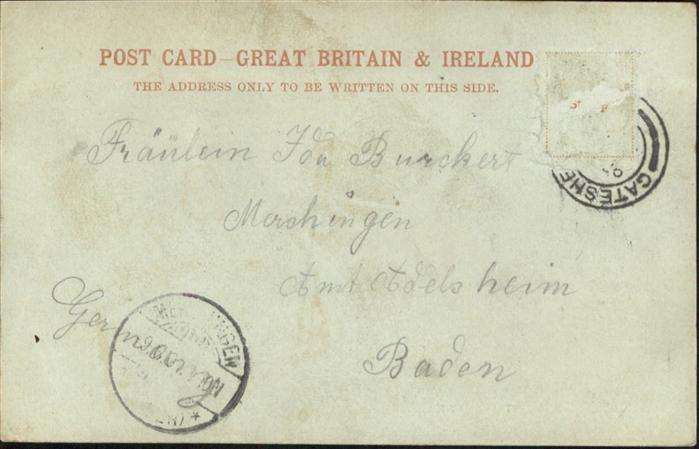 POST CARD—GREAT BRITAIN & IRELAND
THE ADDRESS ONLY TO BE WRITTEN ON THIS SIDE.
Fräulein Ida Burckert
Merchingen
Amt Adelsheim
Baden
Germany
GATESHE